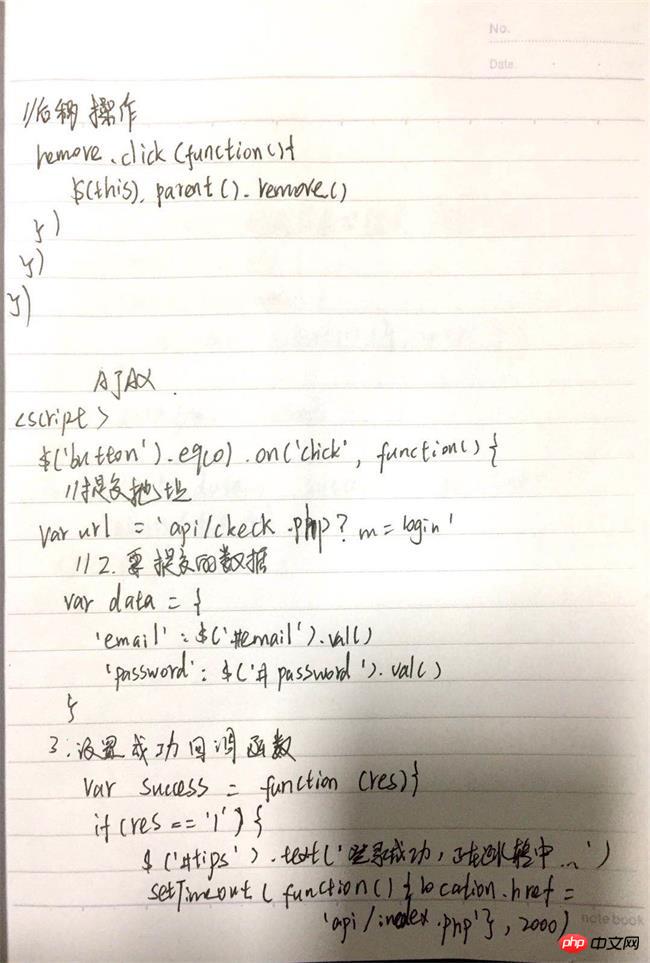 No.
Date.
//后续操作
remove.click(function(){
$(this).parent().remove()
})
})
})
AJAX.
<script>
$('button').eq(0).on('click', function(){
//提交地址
var url = 'api/ckeck.php?m=login'
//2.要提交的数据
var data = {
'email':$('#email').val()
'password':$('#password').val()
}
3.设置成功回调函数
var success = function (res){
if(res=='1'){
$('#tips').text('登录成功,正在跳转中...')
setTimeout(function(){location.href=
'api/index.php'},2000)
notebook
php中文网